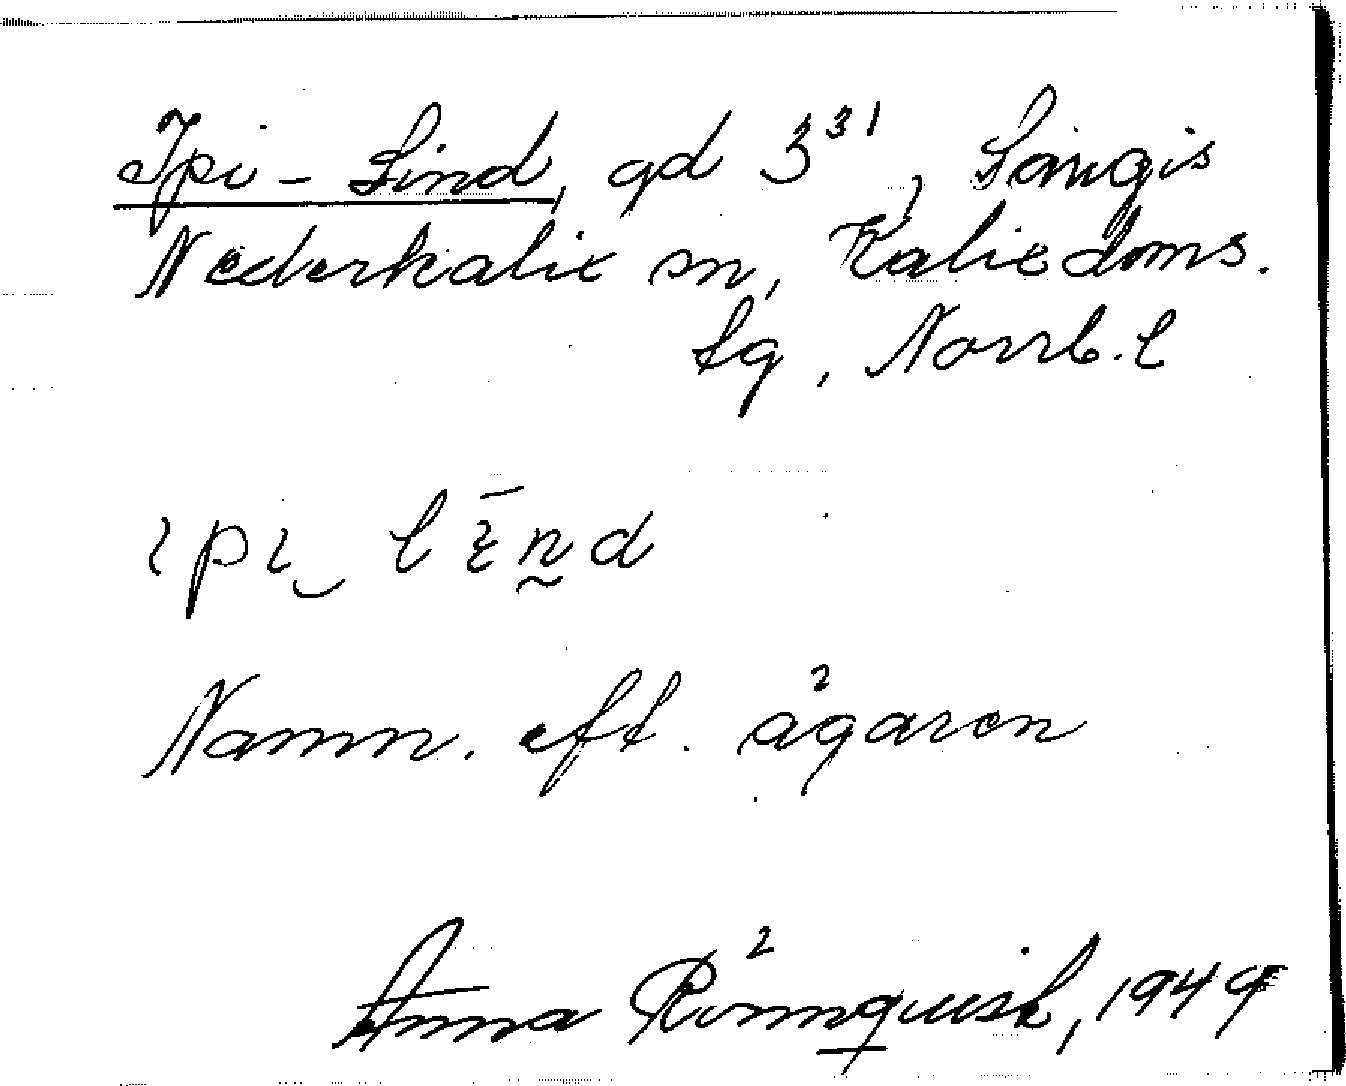 Ipi-Lind, gd 3³¹, Sangis
Nederkalix sn, Kalix doms.
tg, Norrb. l
ɩpɩ‿ lɩ̄n̰d
Namn. eft. ägaren
Anna Rönnquist, 1949